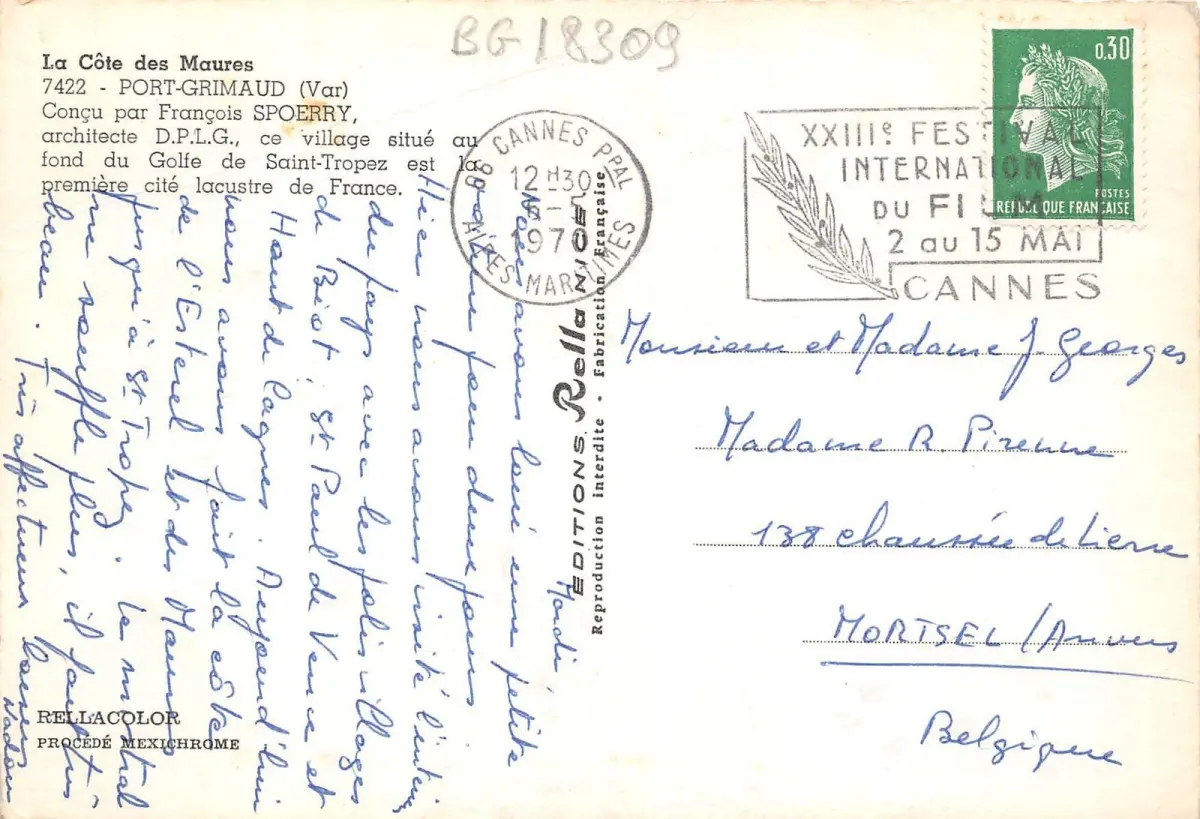 BG 18309
La Côte des Maures
7422 - PORT-GRIMAUD (Var)
Conçu par François SPOERRY,
architecte D.P.L.G., ce village situé au
fond du Golfe de Saint-Tropez est la
première cité lacustre de France.
Mardi,
Nous avons loué une petite
voiture pour deux jours
Hier nous avons visité l'intér
du pays avec les jolis villages
de Biot, St Paul de Vence et
Haut de Cagnes. Aujourd'hui
nous avons fait la côte
de l'Esterel et des Maures
jusqu'à St Tropez. Le mistral
ne souffle plus, il fait très
beau. Très affectueux baisers
RELLACOLOR
PROCÉDÉ MEXICHROME
EDITIONS Rella NICE
Reproduction interdite - Fabrication Française
06 CANNES PPAL
12 H30
5-5
1970
ALPES MARITIMES
XXIIIe FESTIVAL
INTERNATIONAL
DU FILM
2 au 15 MAI
CANNES
0,30
POSTES
REPUBLIQUE FRANCAISE
Monsieur et Madame J. Georges
Madame R. Pirenne
138 chaussée de Lierre
MORTSEL / Anvers
Belgique